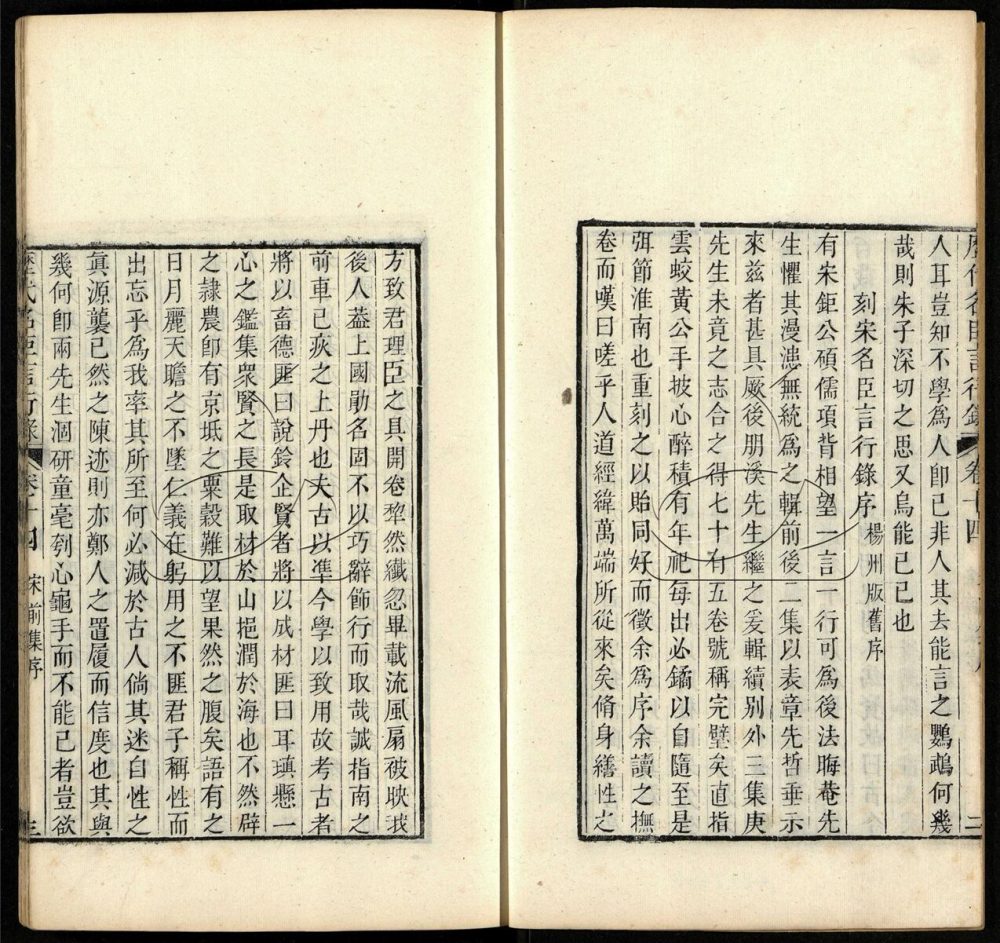 歷代名臣言行錄 卷十四 二
人耳豈知不學爲人卽己非人其去能言之鸚鵡何幾
哉則朱子深切之思又烏能已已也
刻宋名臣言行錄序 楊州版舊序
有宋鉅公碩儒項背相望一言一行可爲後法晦菴先
生懼其漫漶無統爲之輯前後二集以表章先哲垂示
來兹者甚具厥後朋溪先生繼之爰輯續别外三集庚
先生未竟之志合之得七十有五卷號稱完壁矣直指
雲蛟黃公手披心醉積有年祀每出必鐍以自隨至是
弭節淮南也重刻之以貽同好而徵余爲序余讀之撫
卷而嘆曰嗟乎人道經緯萬端所從來矣脩身繕性之
方致君理臣之具開卷犂然纖忽畢載流風扇被映我
後人葢上國勛名固不以巧辭飾行而取哉誠指南之
前車已疢之上丹也夫古以準今學以致用故考古者
將以畜德匪曰說鈴企賢者將以成材匪曰耳瑱懸一
心之鑑集衆賢之長是取材於山挹潤於海也不然辟
之隷農卽有京坻之粟穀難以望果然之腹矣語有之
日月麗天瞻之不墜仁義在躬用之不匪君子稱性而
出忘乎爲我率其所至何必減於古人倘其迷自性之
眞源襲已然之陳迹則亦鄭人之置履而信度也其與
幾何卽兩先生涸研童毫刳心龜手而不能已者豈欲
歷代名臣言行錄 卷十四 宋前集序 三